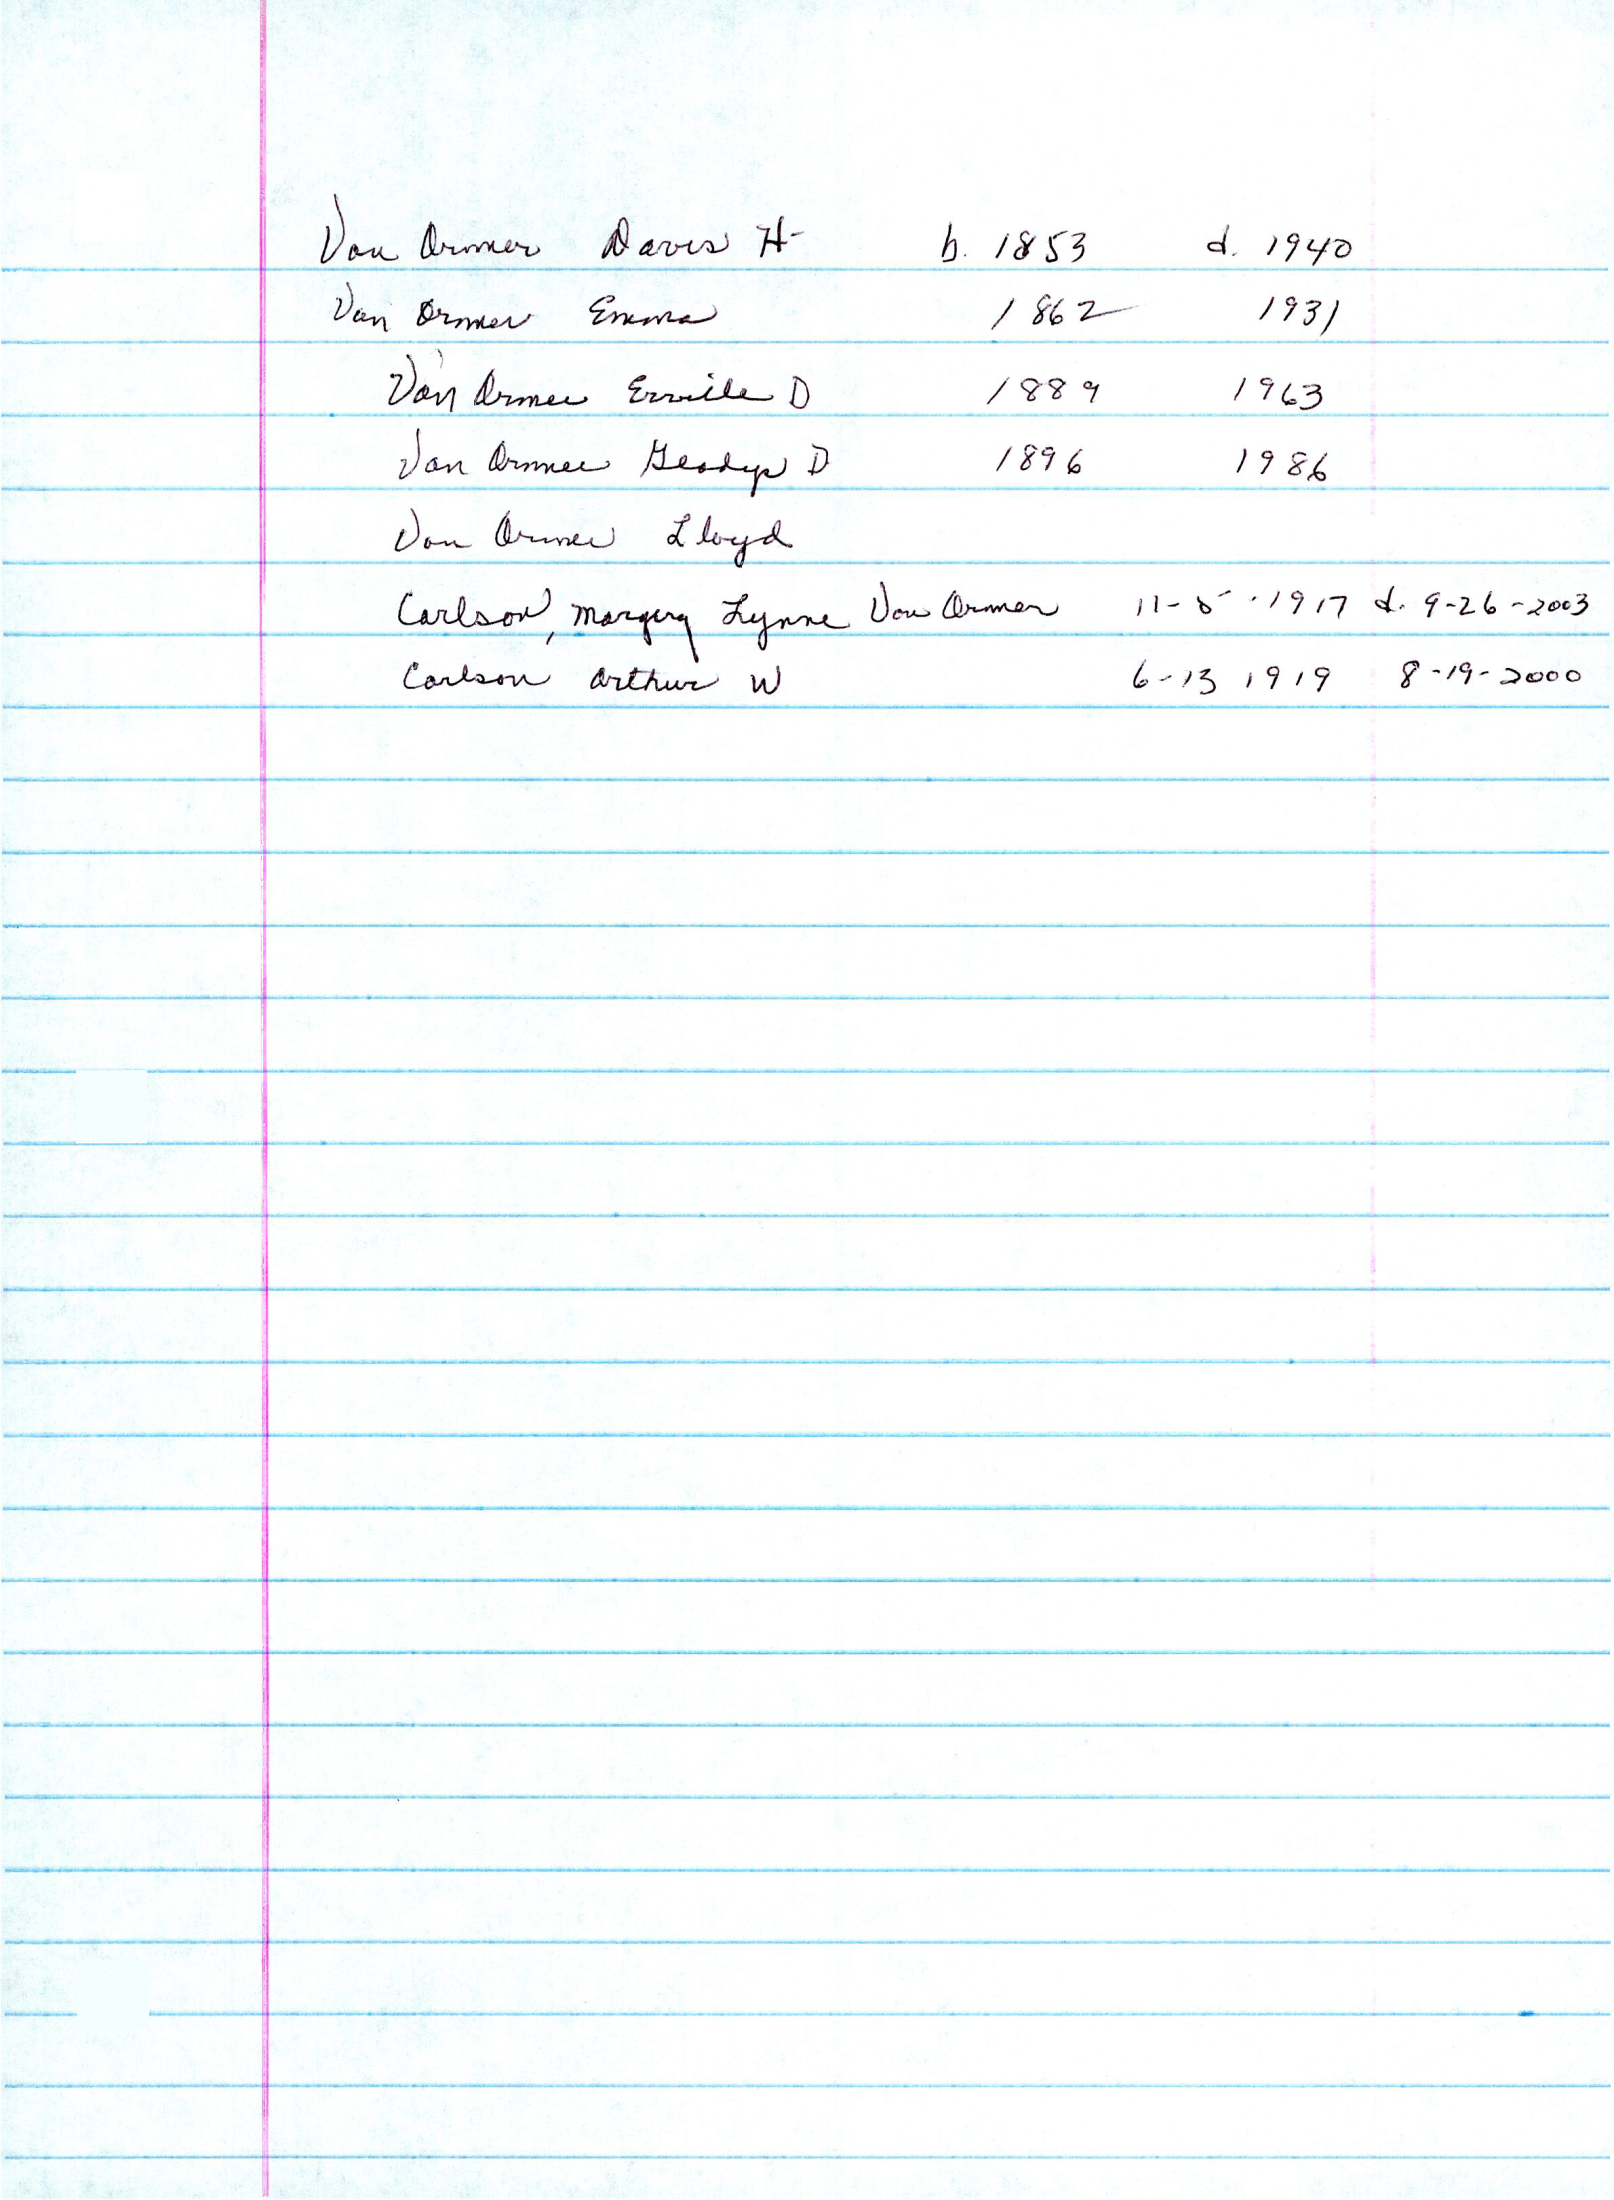 Van Ormer Davis H b. 1853 d. 1940
Van Ormer Emma 1862 1931
Van Ormer Erville D 1889 1963
Van Ormer Gladys D 1896 1986
Van Ormer Lloyd
Carlson, Margery Lynne Van Ormer 11-5-1917 d. 9-26-2003
Carlson Arthur W 6-13 1919 8-19-2000